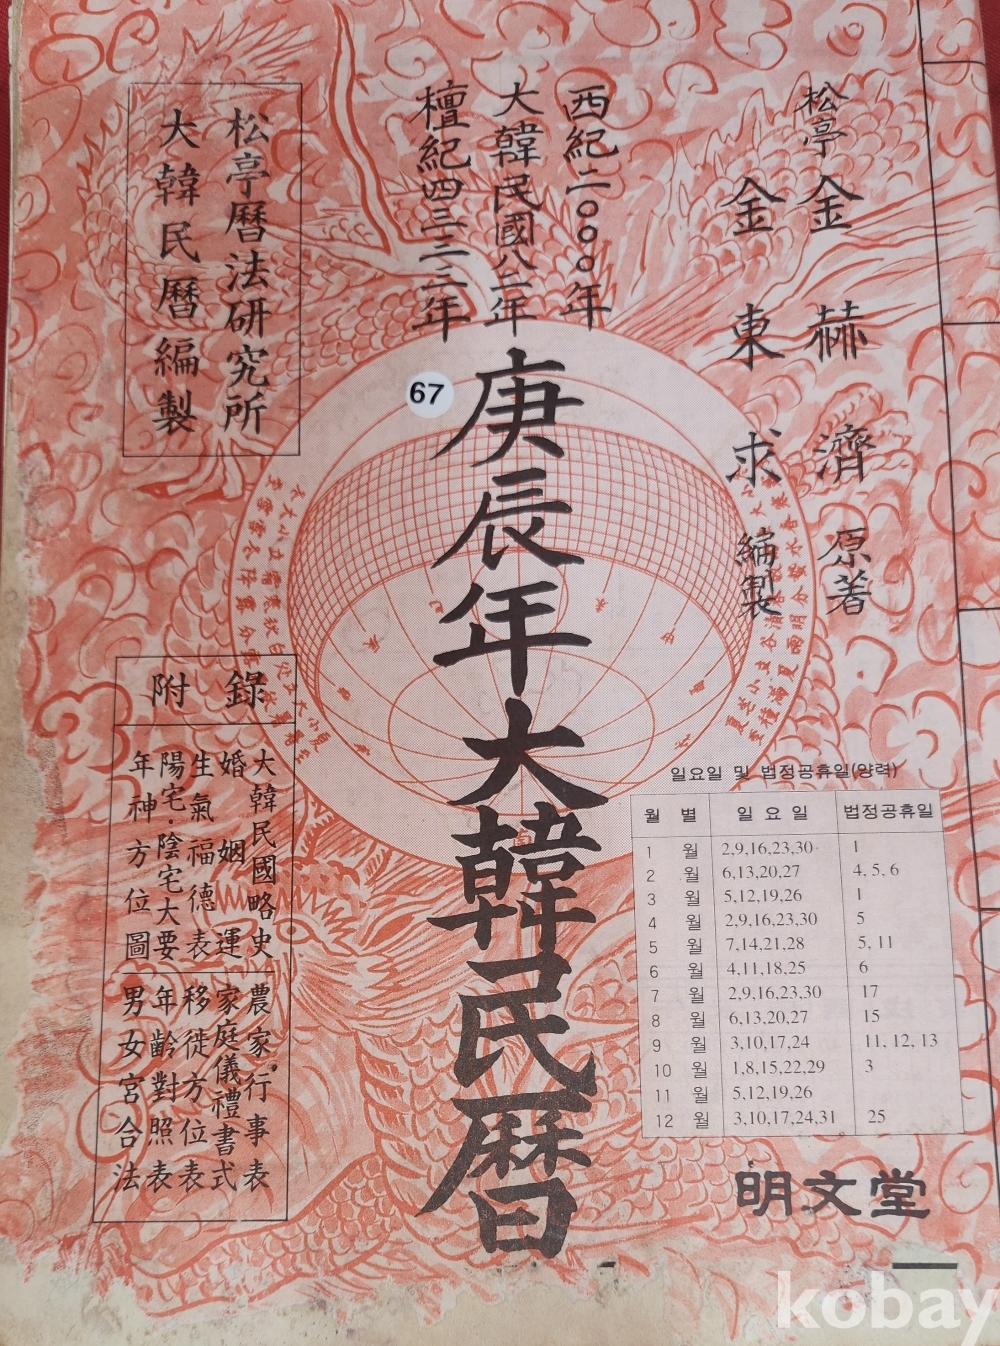 松亭 金赫濟 原著
金東求 編製
西紀二〇〇〇年
大韓民國八二年
檀紀四三三三年
松亭曆法研究所
大韓民曆編製
67
庚辰年大韓民曆
附錄
大韓民國略史
婚姻運
生氣福德表
陽宅·陰宅大要
年神方位圖
農家行事表
家庭儀禮書式
移徙方位表
年齡對照表
男女宮合法
일요일 및 법정공휴일(양력)
월 별 일요일 법정공휴일
1 월 2,9,16,23,30 1
2 월 6,13,20,27 4, 5, 6
3 월 5,12,19,26 1
4 월 2,9,16,23,30 5
5 월 7,14,21,28 5, 11
6 월 4,11,18,25 6
7 월 2,9,16,23,30 17
8 월 6,13,20,27 15
9 월 3,10,17,24 11, 12, 13
10 월 1,8,15,22,29 3
11 월 5,12,19,26
12 월 3,10,17,24,31 25
明文堂
kobay